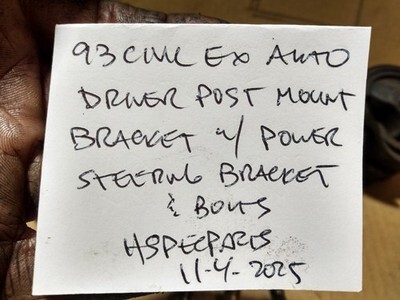 93 CIVIC EX AUTO
DRIVER POST MOUNT
BRACKET w/ POWER
STEERING BRACKET
& BOLTS
HSPECPARTS
11-4-2025